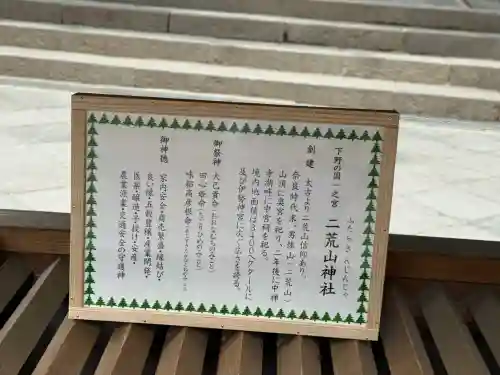 下野の国一之宮
ふたらさんじんじゃ
二荒山神社
創建 太古より二荒山信仰あり、
奈良時代末、男体山(二荒山)
山頂に奥宮祀り、二年後に中禅
寺湖畔に中宮祠を祀る。
境内地面積は3400ヘクタールに
及び伊勢神宮に次ぐ広さを誇る。
御祭神 大己貴命(おおなむちのみこと)
田心姫命(たごりひめのみこと)
味耜高彦根命(あぢすきたかひこねのみこと)
御神徳 家内安全・商売繁盛・縁結び・
良い縁・五穀豊穣・産業開発・
医薬・醸造・子授け・安産・
農業漁業・交通安全の守護神